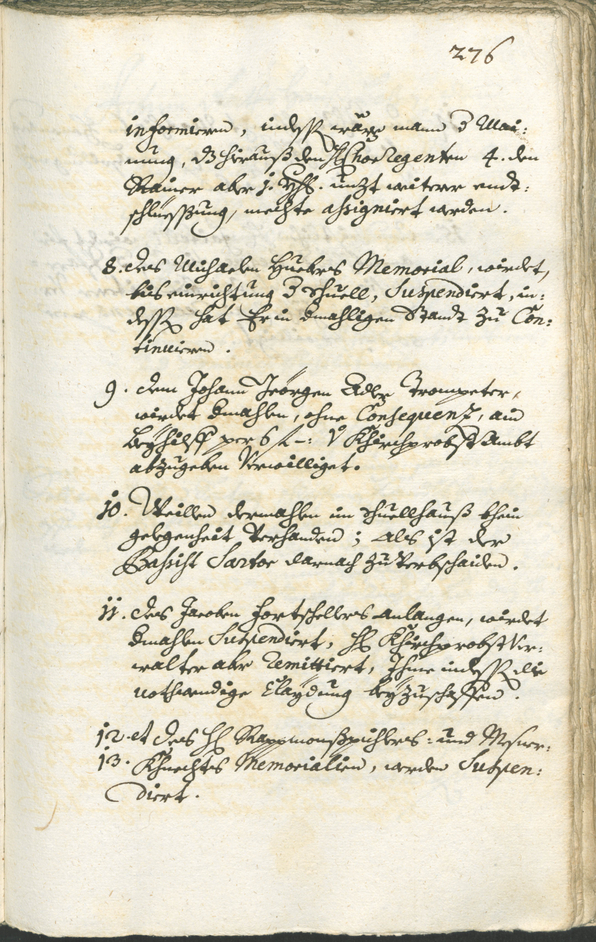 276
informieren, indess wäre mann d Mai-
nung, dz hierauß den H Chor Regenten 4. den
aber j. unzt weitere endt-
schliessung, mechte assigniert werden.
8. des Michaelen Huebers Memorial, wirdet,
bis einrichtung d schuell, Suspendiert, in-
dess hat Er in dmahligen Standt zu Con-
tinuieren.
9. dem Johann Jeörgen Adler Trompeter,
wirdet dmahlen, ohne Consequenz, ain
Beyhilff per 6 f –: V Khürchprobst Ambt
abzugeben Verwilliget.
10. Weillen dermahlen im schuellhauß khein
gelegenheit Verhanden; Als ist der
Bassist Sartor darnach zu Verbschaiden.
11. des Jacoben anlangen, wirdet
dmahlen Suspendiert, H Khürchprobst Ver-
walter aber remittiert, Ihme indess die
nothwendige Claydung beyzuschaffen.
12. et des H und Messner-
13. Khnechts Memorialien, werden Suspen-
diert.